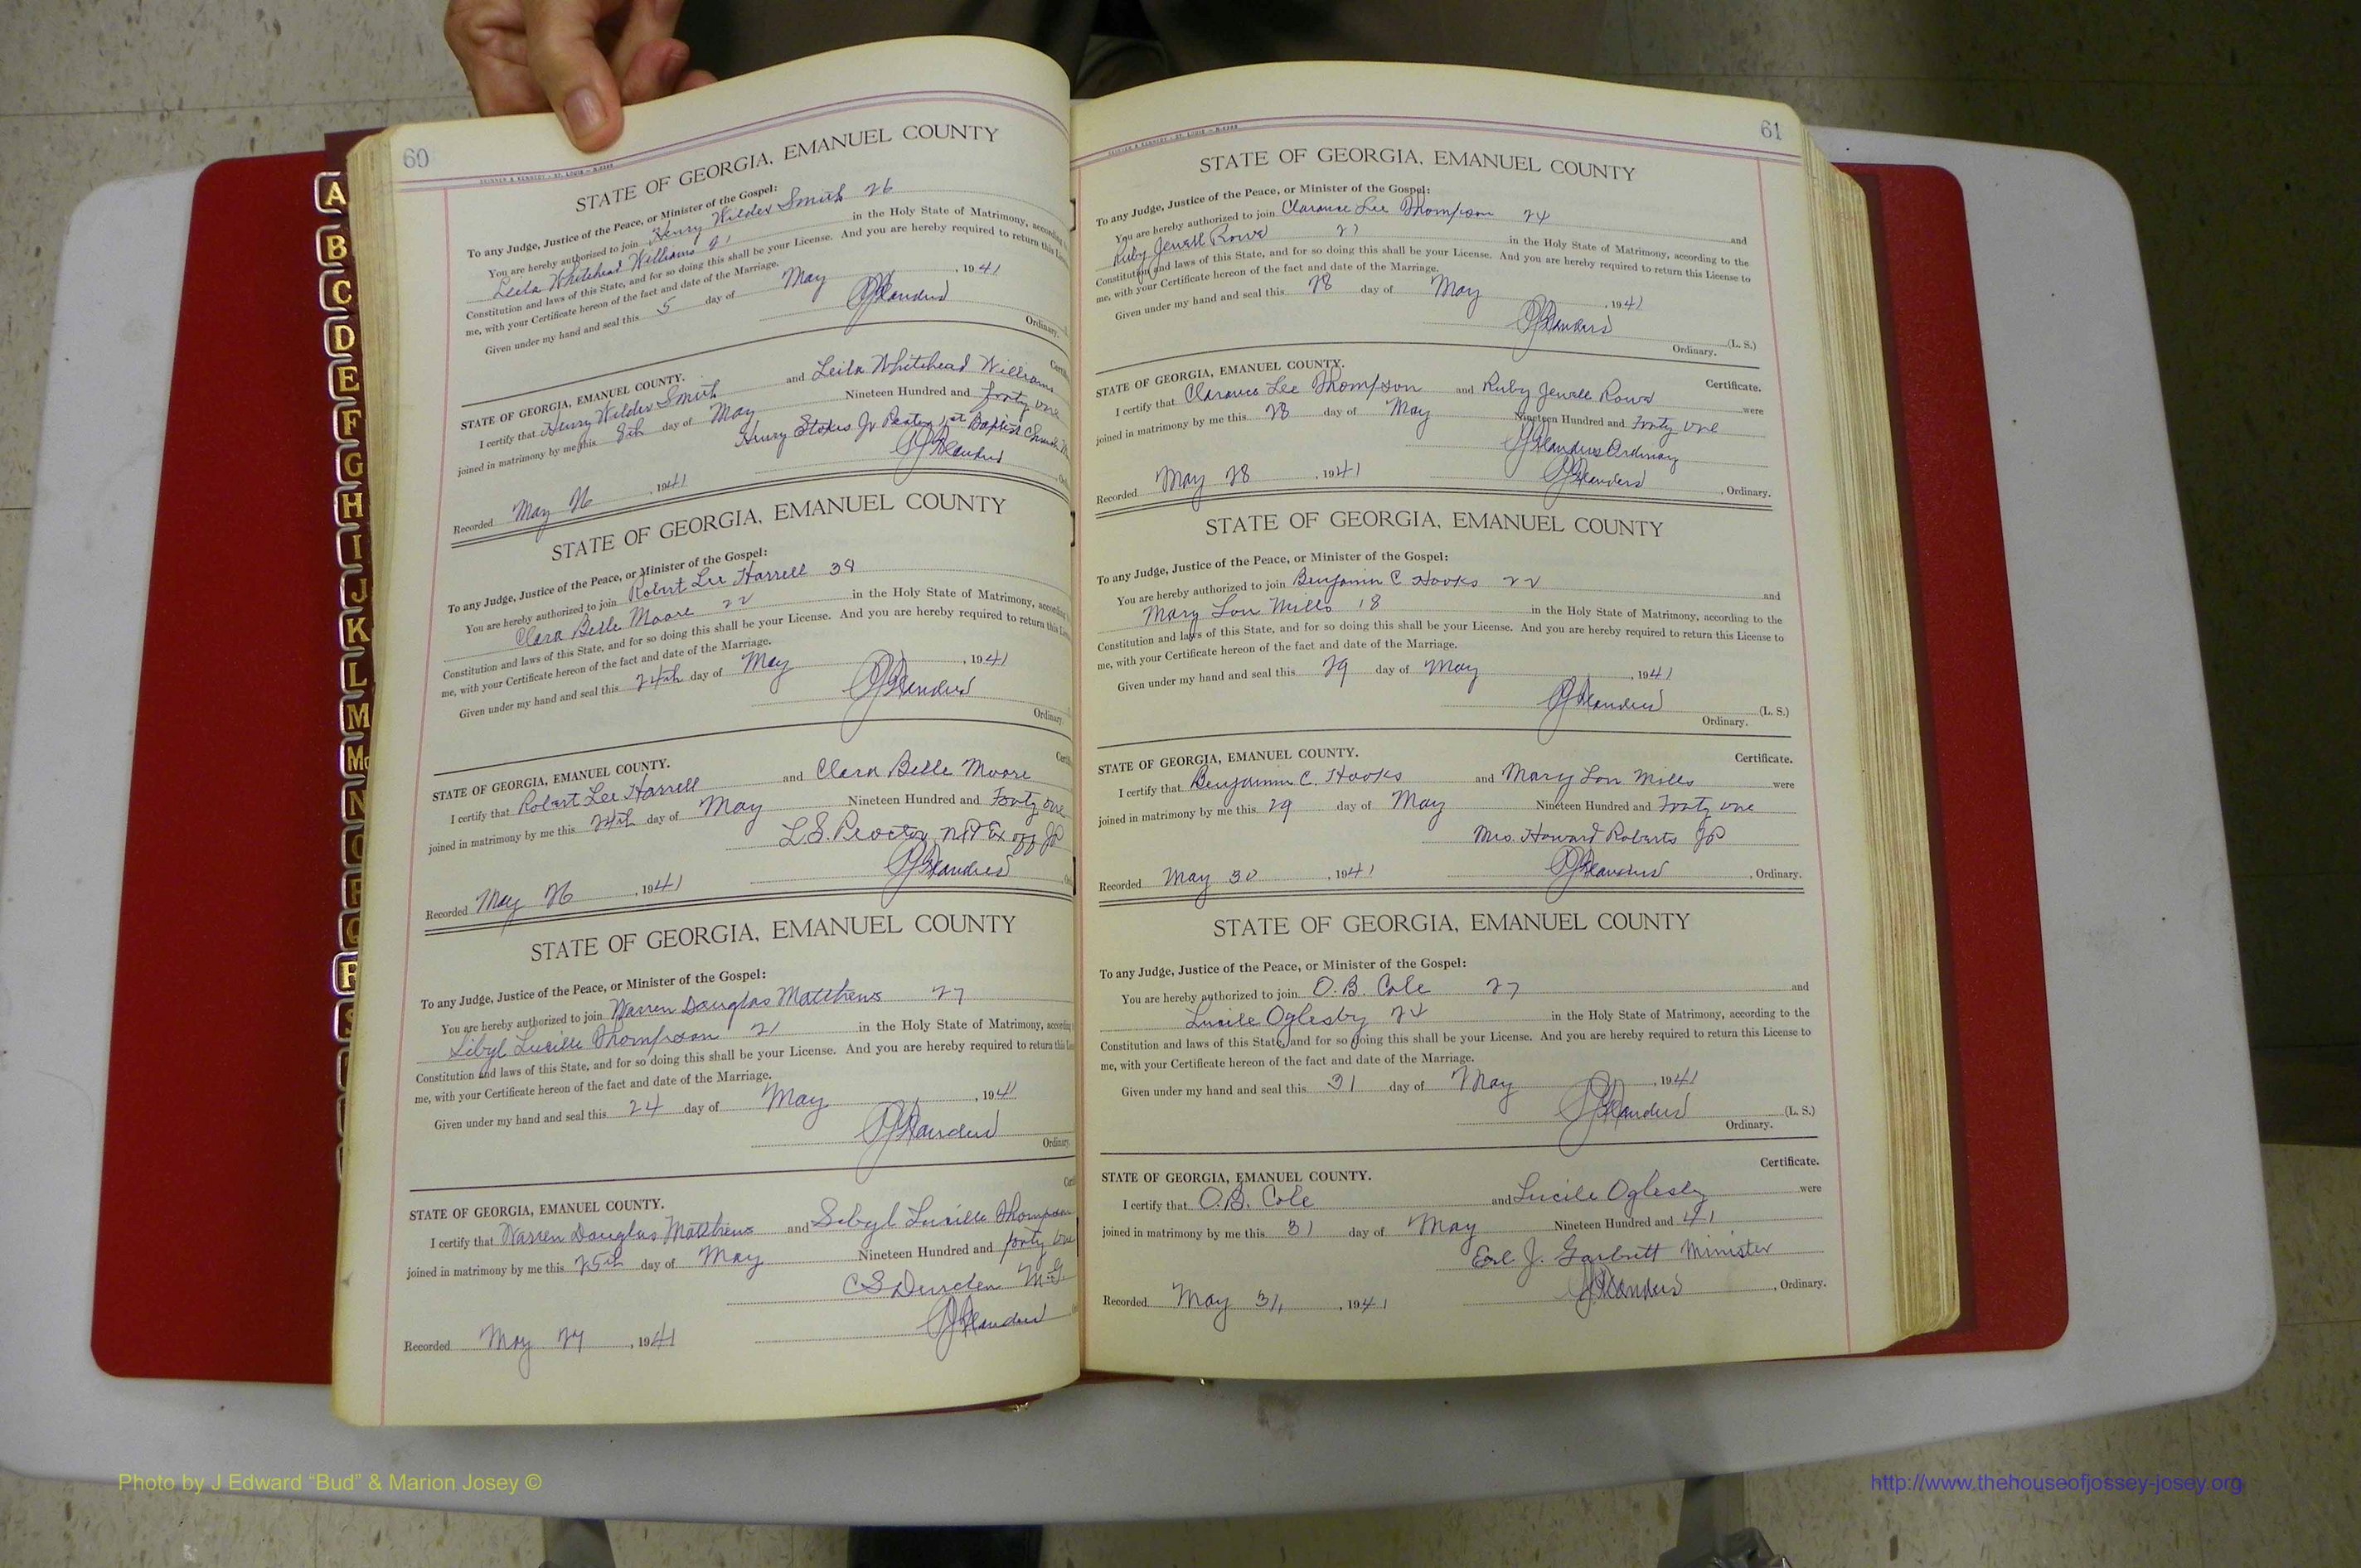 60
SKINNER & KENNEDY - ST. LOUIS
STATE OF GEORGIA, EMANUEL COUNTY
To any Judge, Justice of the Peace, or Minister of the Gospel:
You are hereby authorized to join Henry Wilder Smith 26
Leila Whitehead Williams 21 in the Holy State of Matrimony, according
Constitution and laws of this State, and for so doing this shall be your License. And you are hereby required to return this
me, with your Certificate hereon of the fact and date of the Marriage.
Given under my hand and seal this 5 day of May, 1941
Ordinary.
STATE OF GEORGIA, EMANUEL COUNTY.
I certify that Henry Wilder Smith and Leila Whitehead Williams
joined in matrimony by me this 8th day of May Nineteen Hundred and forty one
Henry Stokes Jr Pastor 1st Baptist Church
Recorded May 26, 1941
STATE OF GEORGIA, EMANUEL COUNTY
To any Judge, Justice of the Peace, or Minister of the Gospel:
You are hereby authorized to join Robert Lee Harrell 38
Clara Belle Moore 22 in the Holy State of Matrimony, according
Constitution and laws of this State, and for so doing this shall be your License. And you are hereby required to return this
me, with your Certificate hereon of the fact and date of the Marriage.
Given under my hand and seal this 24th day of May, 1941
Ordinary.
STATE OF GEORGIA, EMANUEL COUNTY.
I certify that Robert Lee Harrell and Clara Belle Moore
joined in matrimony by me this 24th day of May Nineteen Hundred and Forty one
L.S. Proctor N.P. Ex off JP
Recorded May 26, 1941
STATE OF GEORGIA, EMANUEL COUNTY
To any Judge, Justice of the Peace, or Minister of the Gospel:
You are hereby authorized to join Warren Douglas Matthews 27
Sibyl Lucille Thompson 21 in the Holy State of Matrimony, according
Constitution and laws of this State, and for so doing this shall be your License. And you are hereby required to return this
me, with your Certificate hereon of the fact and date of the Marriage.
Given under my hand and seal this 24 day of May, 1941
Ordinary.
STATE OF GEORGIA, EMANUEL COUNTY.
I certify that Warren Douglas Matthews and Sibyl Lucille Thompson
joined in matrimony by me this 25th day of May Nineteen Hundred and forty one
C S Durden M.G.
Recorded May 27, 1941
A
B
C
D
E
F
G
H
I
J
K
L
M
Mc
N
O
P
Q
R
S
61
SKINNER & KENNEDY - ST. LOUIS
STATE OF GEORGIA, EMANUEL COUNTY
To any Judge, Justice of the Peace, or Minister of the Gospel:
You are hereby authorized to join Clarance Lee Thompson 24 and
Ruby Jewell Rowe 21 in the Holy State of Matrimony, according to the
Constitution and laws of this State, and for so doing this shall be your License. And you are hereby required to return this License to
me, with your Certificate hereon of the fact and date of the Marriage.
Given under my hand and seal this 28 day of May, 1941
(L. S.)
Ordinary.
STATE OF GEORGIA, EMANUEL COUNTY. Certificate.
I certify that Clarance Lee Thompson and Ruby Jewell Rowe were
joined in matrimony by me this 28 day of May Nineteen Hundred and Forty one
Ordinary
Recorded May 28, 1941, Ordinary.
STATE OF GEORGIA, EMANUEL COUNTY
To any Judge, Justice of the Peace, or Minister of the Gospel:
You are hereby authorized to join Benjamin C Hooks 22 and
Mary Lou Mills 18 in the Holy State of Matrimony, according to the
Constitution and laws of this State, and for so doing this shall be your License. And you are hereby required to return this License to
me, with your Certificate hereon of the fact and date of the Marriage.
Given under my hand and seal this 29 day of May, 1941
(L. S.)
Ordinary.
STATE OF GEORGIA, EMANUEL COUNTY. Certificate.
I certify that Benjamin C. Hooks and Mary Lou Mills were
joined in matrimony by me this 29 day of May Nineteen Hundred and Forty one
Mrs. Howard Roberts JP
Recorded May 30, 1941, Ordinary.
STATE OF GEORGIA, EMANUEL COUNTY
To any Judge, Justice of the Peace, or Minister of the Gospel:
You are hereby authorized to join O. B. Cole 27 and
Lucile Oglesby 24 in the Holy State of Matrimony, according to the
Constitution and laws of this State, and for so doing this shall be your License. And you are hereby required to return this License to
me, with your Certificate hereon of the fact and date of the Marriage.
Given under my hand and seal this 31 day of May, 1941
(L. S.)
Ordinary.
Certificate.
STATE OF GEORGIA, EMANUEL COUNTY.
I certify that O. B. Cole and Lucile Oglesby were
joined in matrimony by me this 31 day of May Nineteen Hundred and 41
Earl J. Garbutt Minister
Recorded May 31, 1941, Ordinary.
Photo by J Edward “Bud” & Marion Josey ©
http://www.thehouseofjossey-josey.org